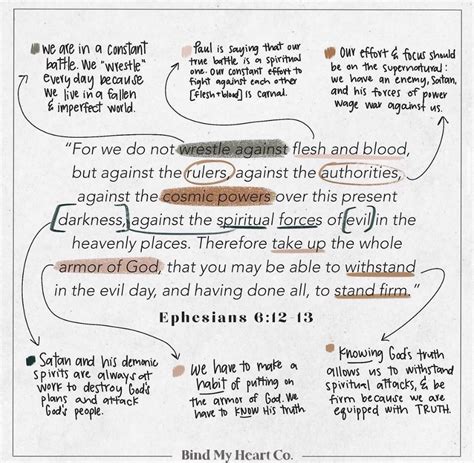 we are in a constant
battle. We "wrestle"
every day because
we live in a fallen
& imperfect world.
Paul is saying that our
true battle is a spiritual
one. Our constant effort to
fight against each other
[flesh+blood] is carnal.
Our effort & focus should
be on the supernatural:
we have an enemy, Satan,
and his forces of power
wage war against us.
"For we do not wrestle against flesh and blood,
but against the rulers, against the authorities,
against the cosmic powers over this present
darkness, against the spiritual forces of evil in the
heavenly places. Therefore take up the whole
armor of God, that you may be able to withstand
in the evil day, and having done all, to stand firm."
Ephesians 6:12-13
Satan and his demonic
spirits are always at
work to destroy God's
plans and attack
God's people.
We have to make a
habit of putting on
the armor of God. We
have to KNOW His truth
Knowing God's truth
allows us to withstand
spiritual attacks, & be
firm because we are
equipped with TRUTH.
Bind My Heart Co.